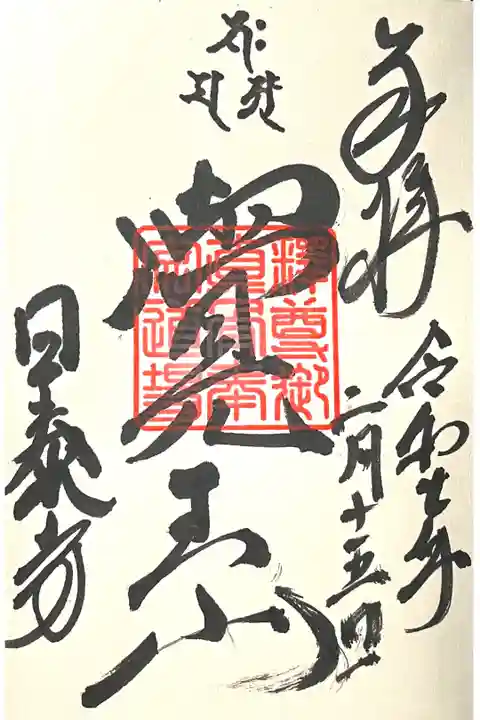 奉拝
令和七年
二月十五日
覺王山
日泰寺
釋尊御
真骨奉
安道場